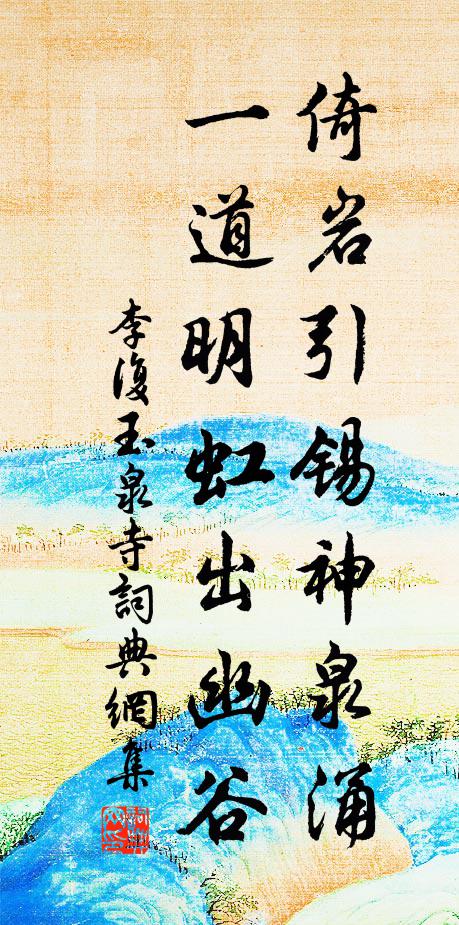 倚岩引锡神泉涌
一道明虹出幽谷
李復玉泉寺詞典網集